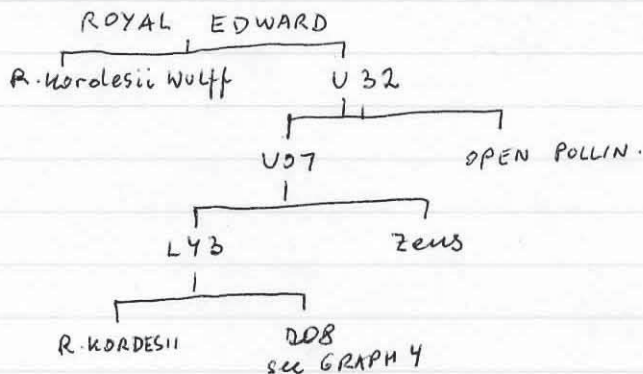 ROYAL EDWARD
R. Kordesii Wulff U 32
U07 OPEN POLLIN.
L43 Zeus
R. KORDESII D08
see GRAPH 4